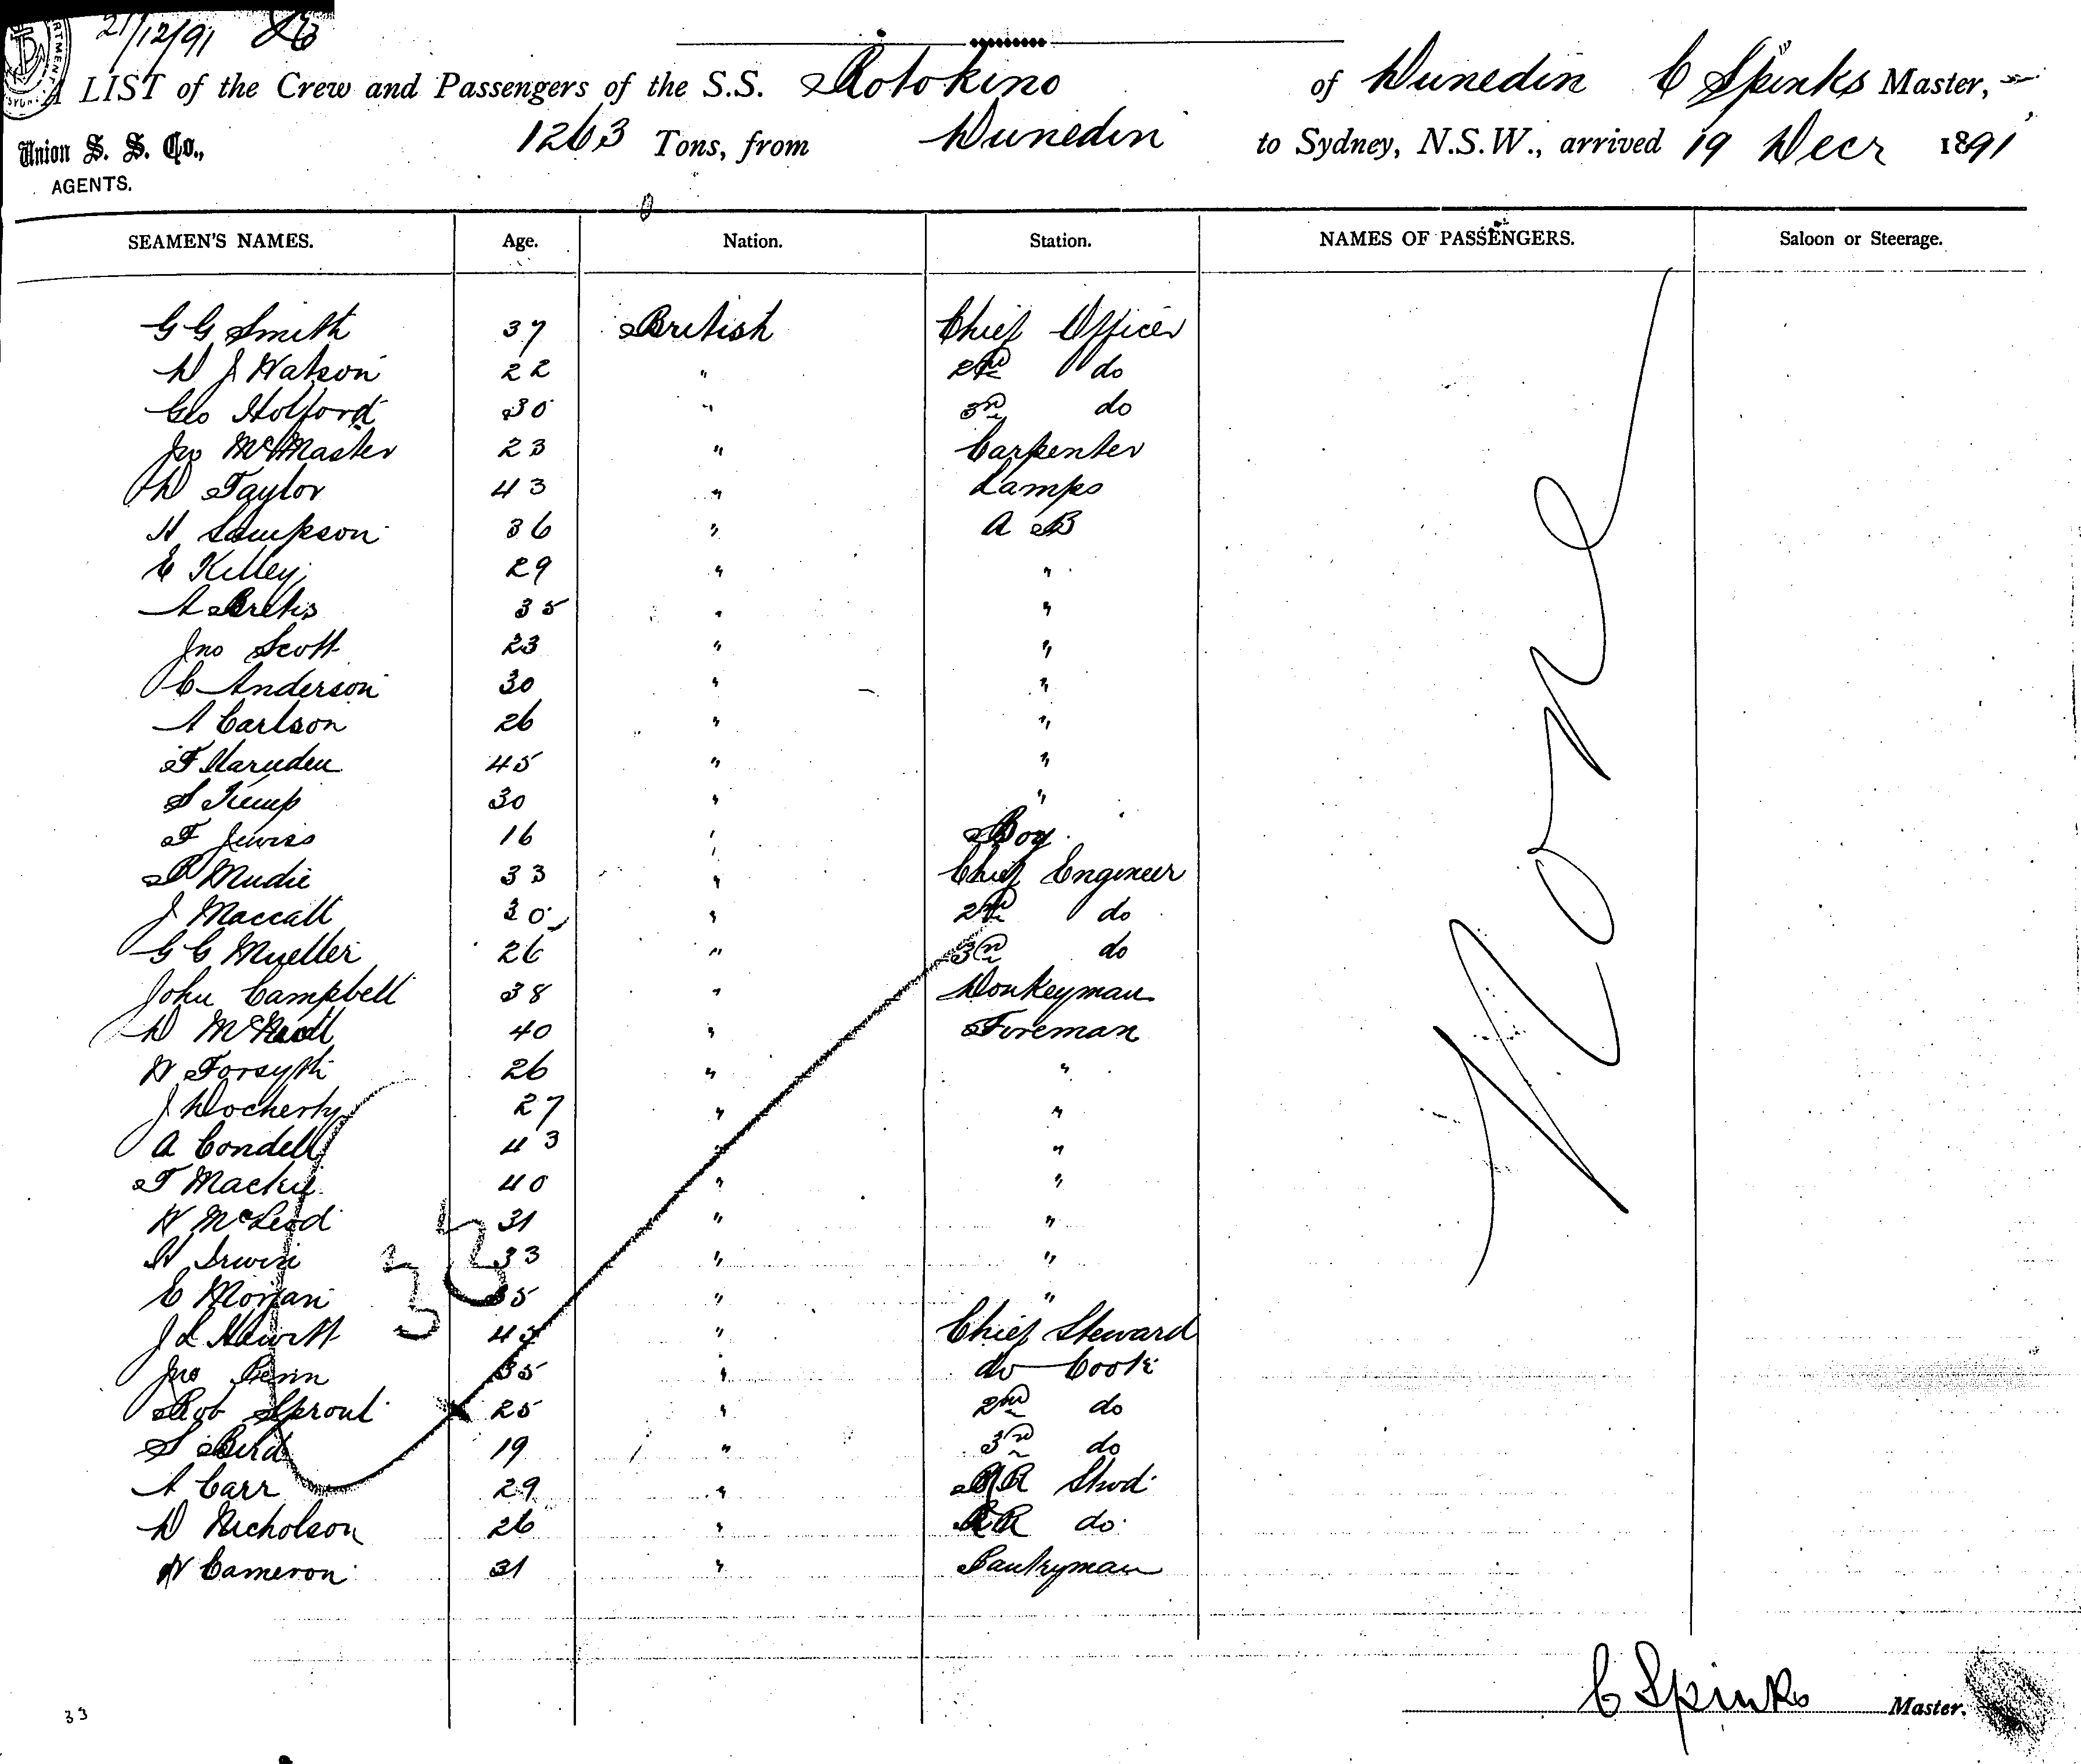 21/12/91
A LIST of the Crew and Passengers of the S.S. Rotokino of Dunedin C Spinks Master,
Union S. S. Co., 1263 Tons, from Dunedin to Sydney, N.S.W., arrived 19 Decr 1891
AGENTS.
SEAMEN'S NAMES. Age. Nation. Station. NAMES OF PASSENGERS. Saloon or Steerage.
G G Smith 37 British Chief Officer
D J Watson 22 " 2nd do
Geo Holford 30 " 3rd do
Jno McMaster 23 " Carpenter
D Taylor 43 " Lamps
H Sampson 36 " A B
E Killey 29 " "
A 35 " "
Jno Scott 23 " "
C Anderson 30 " "
A Carlson 26 " "
F 45 " "
S Kemp 30 " "
F Jewiss 16 " Boy
P Mudie 33 " Chief Engineer
J Maccall 30 " 2nd do
G C Mueller 26 " 3rd do
John Campbell 38 " Donkeyman
D 40 " Foreman
W Forsyth 26 " "
J Docherty 27 " "
A Condell 43 " "
T Mackie 40 " "
W McLeod 31 " "
W Irwin 33 " "
E 35 " "
J L Hewitt 45 " Chief Steward
Jno Penn 35 " do Cook
Rob Sproul 25 " 2nd do
S Bird 19 " 3rd do
A Carr 29 " Stwd
D Nicholson 26 " do
W Cameron 31 " Pantryman
None
33
C Spinks Master.
33